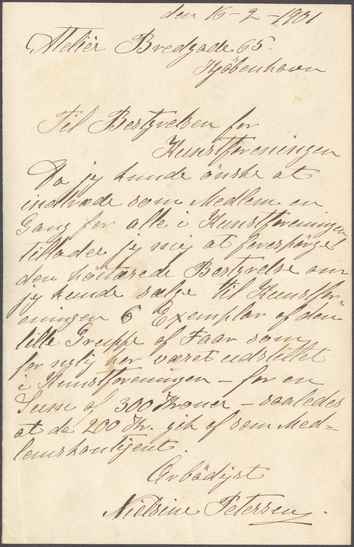 den 16-2-1901
Atelier Bredgade 65.
Kjöbenhavn
Til Bestyrelsen for
Kunstforeningen
Da jeg kunde önske at
indtræde som Medlem en
Gang for alle i Kunstforeningen
tillader jeg mig at forespørge
den honorerede Bestyrelse om
jeg kunde sælge til Kunstfor-
eningen 6 Exemplar af den
lille Gruppe af Faar som
for nylig har været udstillet
i Kunstforeningen - for en
Sum af 300 Kroner - saaledes
at de 200 Kr. gik af som Med-
lemskontigent.
Ærbödigst
Nielsine Petersen.